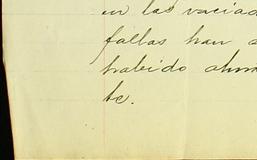 en las vaciad
fallas han
habido
tc.